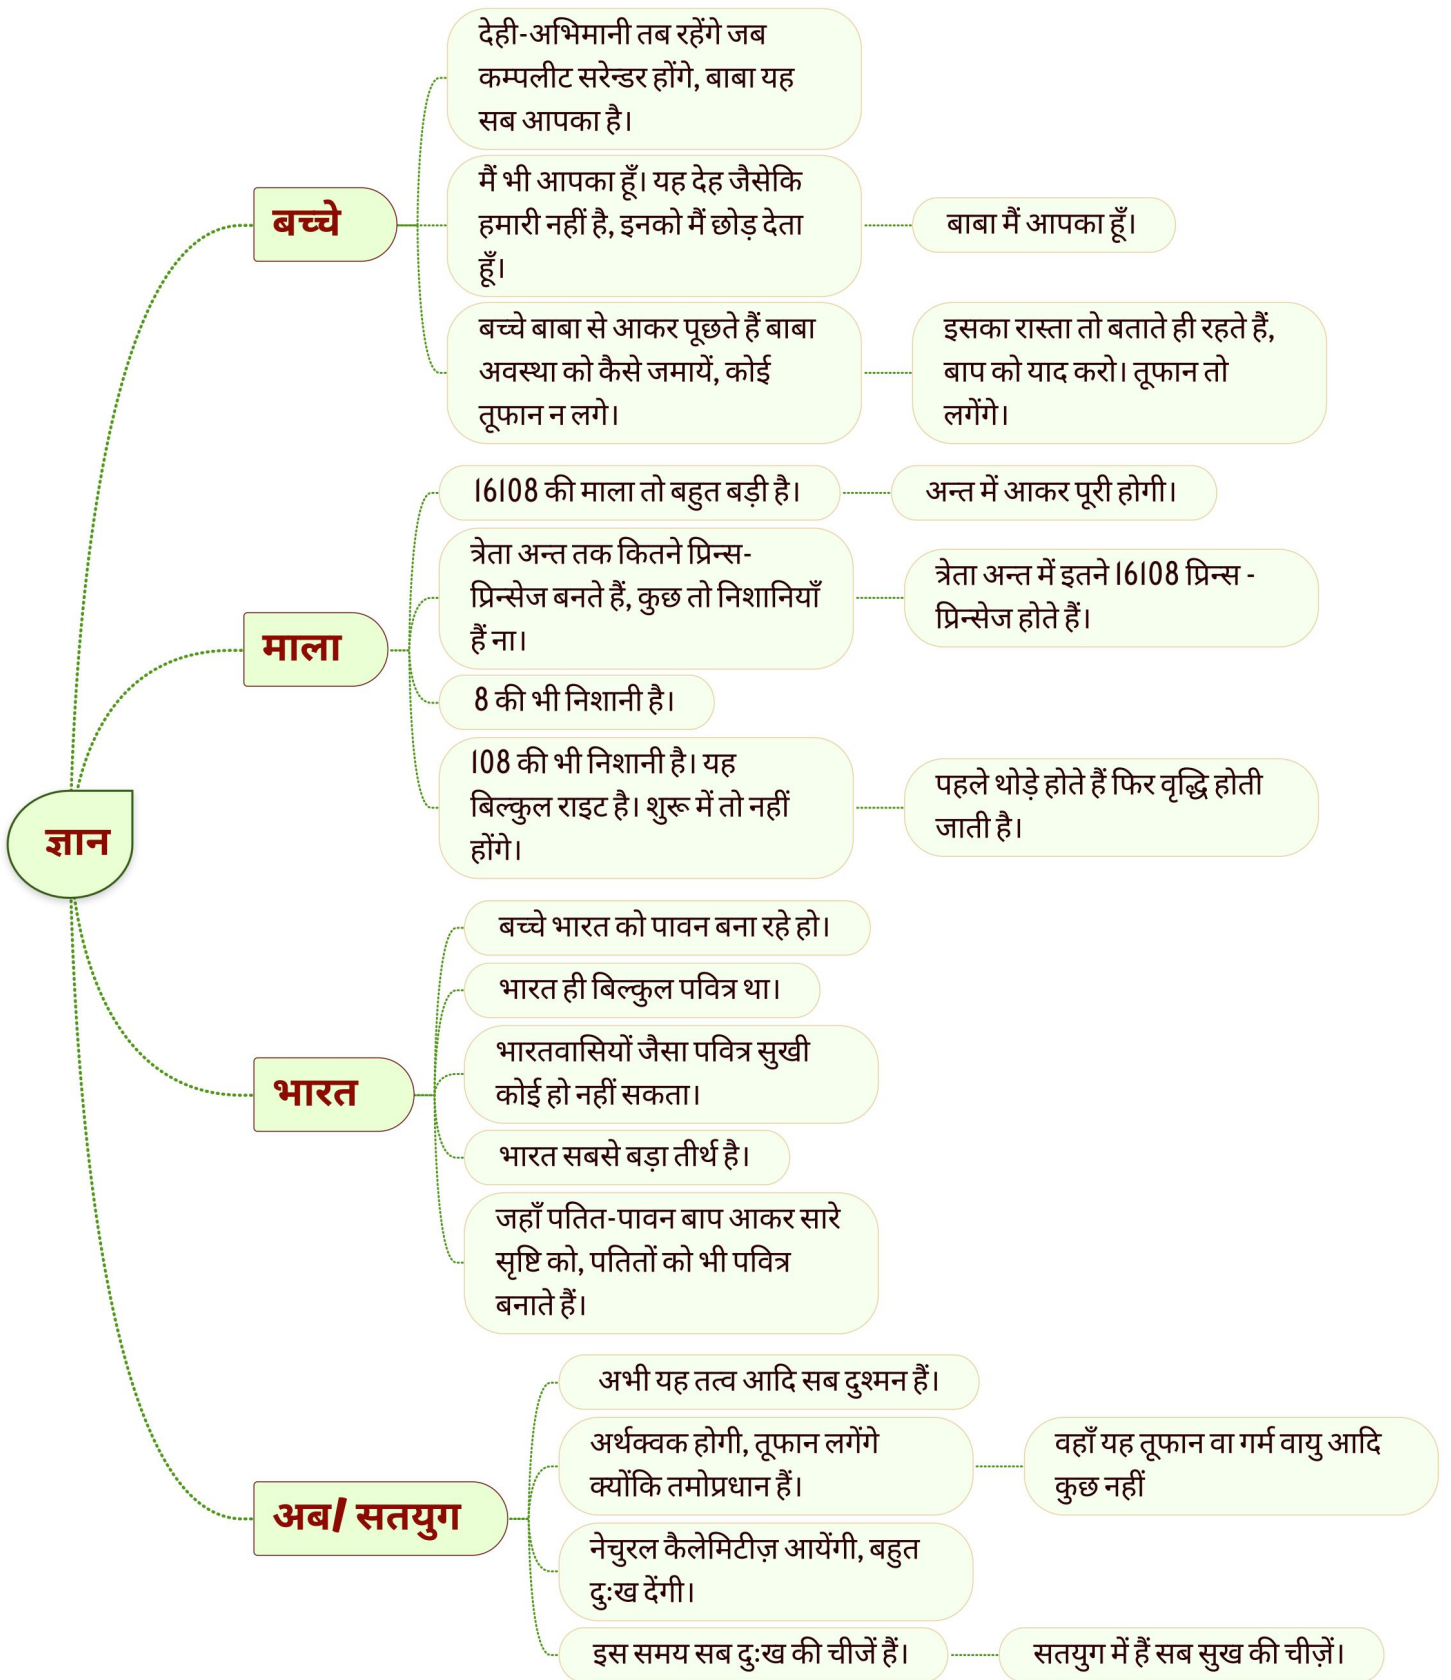 देही-अभिमानी तब रहेंगे जब
कम्पलीट सरेन्डर होंगे, बाबा यह
सब आपका है।
बच्चे
मैं भी आपका हूँ। यह देह जैसेकि
हमारी नहीं है, इनको मैं छोड़ देता
हूँ।
बाबा मैं आपका हूँ।
बच्चे बाबा से आकर पूछते हैं बाबा
अवस्था को कैसे जमायें, कोई
तूफान न लगे।
इसका रास्ता तो बताते ही रहते हैं,
बाप को याद करो। तूफान तो
लगेंगे।
16108 की माला तो बहुत बड़ी है।
अन्त में आकर पूरी होगी।
माला
त्रेता अन्त तक कितने प्रिन्स-
प्रिन्सेज बनते हैं, कुछ तो निशानियाँ
हैं ना।
त्रेता अन्त में इतने 16108 प्रिन्स -
प्रिन्सेज होते हैं।
8 की भी निशानी है।
108 की भी निशानी है। यह
बिल्कुल राइट है। शुरू में तो नहीं
होंगे।
पहले थोड़े होते हैं फिर वृद्धि होती
जाती है।
ज्ञान
बच्चे भारत को पावन बना रहे हो।
भारत ही बिल्कुल पवित्र था।
भारत
भारतवासियों जैसा पवित्र सुखी
कोई हो नहीं सकता।
भारत सबसे बड़ा तीर्थ है।
जहाँ पतित-पावन बाप आकर सारे
सृष्टि को, पतितों को भी पवित्र
बनाते हैं।
अब/ सतयुग
अभी यह तत्व आदि सब दुश्मन हैं।
अर्थक्वक होगी, तूफान लगेंगे
क्योंकि तमोप्रधान हैं।
वहाँ यह तूफान वा गर्म वायु आदि
कुछ नहीं
नेचुरल कैलेमिटीज़ आयेंगी, बहुत
दुःख देंगी।
इस समय सब दुःख की चीजें हैं।
सतयुग में हैं सब सुख की चीज़ें।